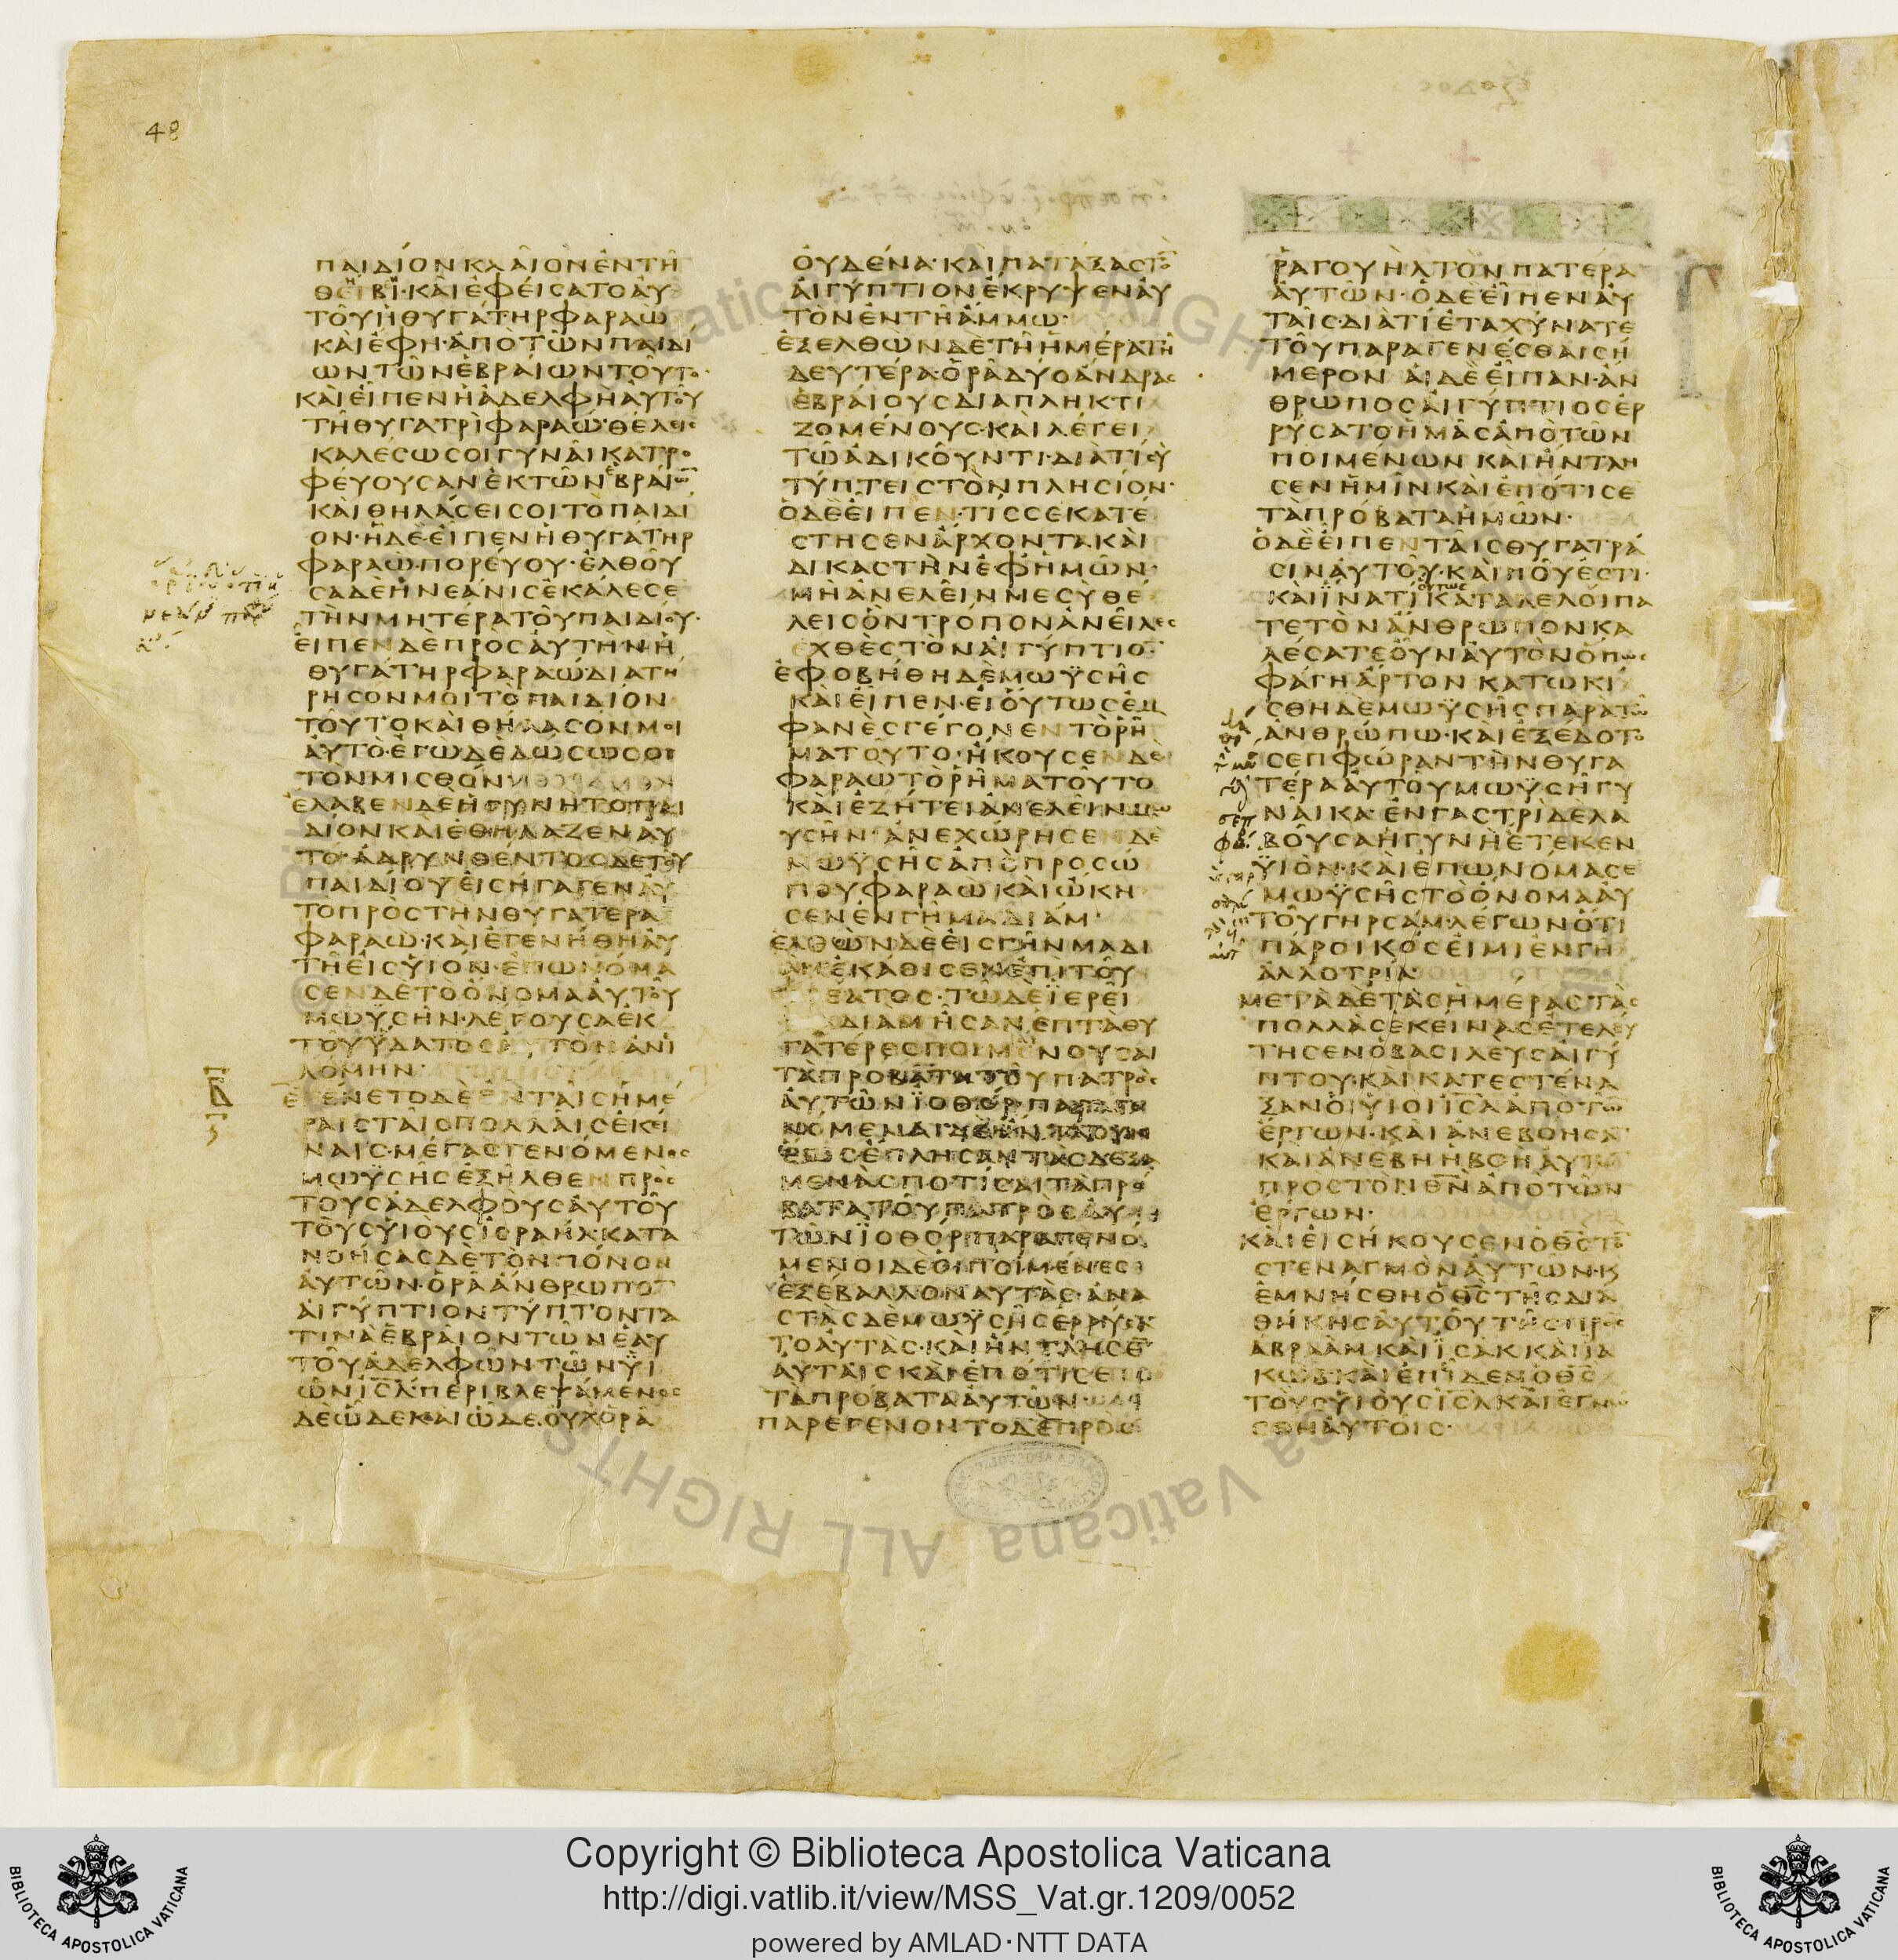 48
ΠΑΙΔΙΟΝ ΚΛΑΙΟΝ ΕΝ ΤΗ
ΘΕΙΒΙ· ΚΑΙ ΕΦΕΙΣΑΤΟ ΑΥ
ΤΟΥ Η ΘΥΓΑΤΗΡ ΦΑΡΑΩ
ΚΑΙ ΕΦΗ· ΑΠΟ ΤΩΝ ΠΑΙΔΙ
ΩΝ ΤΩΝ ΕΒΡΑΙΩΝ ΤΟΥΤΟ·
ΚΑΙ ΕΙΠΕΝ Η ΑΔΕΛΦΗ ΑΥΤΟΥ
ΤΗ ΘΥΓΑΤΡΙ ΦΑΡΑΩ· ΘΕΛΕΙΣ
ΚΑΛΕΣΩ ΣΟΙ ΓΥΝΑΙΚΑ ΤΡΟ
ΦΕΥΟΥΣΑΝ ΕΚ ΤΩΝ ΕΒΡΑΙΩ̅
ΚΑΙ ΘΗΛΑΣΕΙ ΣΟΙ ΤΟ ΠΑΙΔΙ
ΟΝ· Η ΔΕ ΕΙΠΕΝ Η ΘΥΓΑΤΗΡ
ΦΑΡΑΩ· ΠΟΡΕΥΟΥ· ΕΛΘΟΥ
ΣΑ ΔΕ Η ΝΕΑΝΙΣ ΕΚΑΛΕΣΕ
ΤΗΝ ΜΗΤΕΡΑ ΤΟΥ ΠΑΙΔΙΟΥ·
ΕΙΠΕΝ ΔΕ ΠΡΟΣ ΑΥΤΗΝ Η
ΘΥΓΑΤΗΡ ΦΑΡΑΩ ΔΙΑΤΗ
ΡΗΣΟΝ ΜΟΙ ΤΟ ΠΑΙΔΙΟΝ
ΤΟΥΤΟ ΚΑΙ ΘΗΛΑΣΟΝ ΜΟΙ
ΑΥΤΟ· ΕΓΩ ΔΕ ΔΩΣΩ ΣΟΙ
ΤΟΝ ΜΙΣΘΟΝ
ΕΛΑΒΕΝ ΔΕ Η ΓΥΝΗ ΤΟ ΠΑΙ
ΔΙΟΝ ΚΑΙ ΕΘΗΛΑΖΕΝ ΑΥ
ΤΟ· ΑΔΡΥΝΘΕΝΤΟΣ ΔΕ ΤΟΥ
ΠΑΙΔΙΟΥ ΕΙΣΗΓΑΓΕΝ ΑΥ
ΤΟ ΠΡΟΣ ΤΗΝ ΘΥΓΑΤΕΡΑ
ΦΑΡΑΩ· ΚΑΙ ΕΓΕΝΗΘΗ ΑΥ
ΤΗ ΕΙΣ ΥΙΟΝ· ΕΠΩΝΟΜΑ
ΣΕΝ ΔΕ ΤΟ ΟΝΟΜΑ ΑΥΤΟΥ
ΜΩΥΣΗΝ· ΛΕΓΟΥΣΑ ΕΚ
ΤΟΥ ΥΔΑΤΟΣ ΑΥΤΟΝ ΑΝΙ
ΛΟΜΗΝ·
ΕΓΕΝΕΤΟ ΔΕ ΕΝ ΤΑΙΣ ΗΜΕ
ΡΑΙΣ ΤΑΙΣ ΠΟΛΛΑΙΣ ΕΚΕΙ
ΝΑΙΣ· ΜΕΓΑΣ ΓΕΝΟΜΕΝΟΣ
ΜΩΥΣΗΣ ΕΞΗΛΘΕΝ ΠΡΟΣ
ΤΟΥΣ ΑΔΕΛΦΟΥΣ ΑΥΤΟΥ
ΤΟΥΣ ΥΙΟΥΣ ΙΣΡΑΗΛ· ΚΑΤΑ
ΝΟΗΣΑΣ ΔΕ ΤΟΝ ΠΟΝΟΝ
ΑΥΤΩΝ· ΟΡΑ ΑΝΘΡΩΠΟΝ
ΑΙΓΥΠΤΙΟΝ ΤΥΠΤΟΝΤΑ
ΤΙΝΑ ΕΒΡΑΙΟΝ ΤΩΝ ΕΑΥ
ΤΟΥ ΑΔΕΛΦΩΝ ΤΩΝ ΥΙ
ΩΝ ΙΣ̅Λ· ΠΕΡΙΒΛΕΨΑΜΕΝΟΣ
ΔΕ ΩΔΕ ΚΑΙ ΩΔΕ· ΟΥΧ ΟΡΑ
ΟΥΔΕΝΑ· ΚΑΙ ΠΑΤΑΞΑΣ ΤΟ̅
ΑΙΓΥΠΤΙΟΝ ΕΚΡΥΨΕΝ ΑΥ
ΤΟΝ ΕΝ ΤΗ ΑΜΜΩ·
ΕΞΕΛΘΩΝ ΔΕ ΤΗ ΗΜΕΡΑ ΤΗ
ΔΕΥΤΕΡΑ· ΟΡΑ ΔΥΟ ΑΝΔΡΑΣ
ΕΒΡΑΙΟΥΣ ΔΙΑΠΛΗΚΤΙ
ΖΟΜΕΝΟΥΣ· ΚΑΙ ΛΕΓΕΙ
ΤΩ ΑΔΙΚΟΥΝΤΙ· ΔΙΑ ΤΙ ΣΥ
ΤΥΠΤΕΙΣ ΤΟΝ ΠΛΗΣΙΟΝ·
Ο ΔΕ ΕΙΠΕΝ· ΤΙΣ ΣΕ ΚΑΤΕ
ΣΤΗΣΕΝ ΑΡΧΟΝΤΑ ΚΑΙ
ΔΙΚΑΣΤΗΝ ΕΦ ΗΜΩΝ·
ΜΗ ΑΝΕΛΕΙΝ ΜΕ ΣΥ ΘΕ
ΛΕΙΣ ΟΝ ΤΡΟΠΟΝ ΑΝΕΙΛΕΣ
ΕΧΘΕΣ ΤΟΝ ΑΙΓΥΠΤΙΟ̅
ΕΦΟΒΗΘΗ ΔΕ ΜΩΥΣΗΣ
ΚΑΙ ΕΙΠΕΝ· ΕΙ ΟΥΤΩΣ ΕΜ
ΦΑΝΕΣ ΓΕΓΟΝΕΝ ΤΟ ΡΗ
ΜΑ ΤΟΥΤΟ· ΗΚΟΥΣΕΝ ΔΕ
ΦΑΡΑΩ ΤΟ ΡΗΜΑ ΤΟΥΤΟ
ΚΑΙ ΕΖΗΤΕΙ ΑΝΕΛΕΙΝ ΜΩ
ΥΣΗΝ· ΑΝΕΧΩΡΗΣΕΝ ΔΕ
ΜΩΥΣΗΣ ΑΠΟ ΠΡΟΣΩ
ΠΟΥ ΦΑΡΑΩ ΚΑΙ ΩΚΗ
ΣΕΝ ΕΝ ΓΗ ΜΑΔΙΑΜ·
ΕΛΘΩΝ ΔΕ ΕΙΣ ΓΗΝ ΜΑΔΙ
ΑΜ ΕΚΑΘΙΣΕΝ ΕΠΙ ΤΟΥ
ΦΡΕΑΤΟΣ· ΤΩ ΔΕ ΙΕΡΕΙ
ΜΑΔΙΑΜ ΗΣΑΝ ΕΠΤΑ ΘΥ
ΓΑΤΕΡΕΣ ΠΟΙΜΕΝΟΥΣΑΙ
ΤΑ ΠΡΟΒΑΤΑ ΤΟΥ ΠΑΤΡΟΣ
ΑΥΤΩΝ ΙΟΘΟΡ·
ΕΠΛΗΣΑΝ ΤΑΣ ΔΕΞΑ
ΜΕΝΑΣ ΠΟΤΙΣΑΙ ΤΑ ΠΡΟ
ΒΑΤΑ ΤΟΥ ΠΑΤΡΟΣ ΑΥ
ΤΩΝ ΙΟΘΟΡ· ΠΑΡΑΓΕΝΟ
ΜΕΝΟΙ ΔΕ ΟΙ ΠΟΙΜΕΝΕΣ
ΕΞΕΒΑΛΛΟΝ ΑΥΤΑΣ· ΑΝΑ
ΣΤΑΣ ΔΕ ΜΩΥΣΗΣ ΕΡΡΥΣΑ
ΤΟ ΑΥΤΑΣ· ΚΑΙ ΗΝΤΛΗΣΕ̅
ΑΥΤΑΙΣ ΚΑΙ ΕΠΟΤΙΣΕ
ΤΑ ΠΡΟΒΑΤΑ ΑΥΤΩΝ·
ΠΑΡΕΓΕΝΟΝΤΟ ΔΕ ΠΡΟΣ
ΡΑΓΟΥΗΛ ΤΟΝ ΠΑΤΕΡΑ
ΑΥΤΩΝ· Ο ΔΕ ΕΙΠΕΝ ΑΥ
ΤΑΙΣ· ΔΙΑ ΤΙ ΕΤΑΧΥΝΑΤΕ
ΤΟΥ ΠΑΡΑΓΕΝΕΣΘΑΙ ΣΗ
ΜΕΡΟΝ ΑΙ ΔΕ ΕΙΠΑΝ· ΑΝ
ΘΡΩΠΟΣ ΑΙΓΥΠΤΙΟΣ ΕΡ
ΡΥΣΑΤΟ ΗΜΑΣ ΑΠΟ ΤΩΝ
ΠΟΙΜΕΝΩΝ ΚΑΙ ΗΝΤΛΗ
ΣΕΝ ΗΜΙΝ ΚΑΙ ΕΠΟΤΙΣΕ
ΤΑ ΠΡΟΒΑΤΑ ΗΜΩΝ·
Ο ΔΕ ΕΙΠΕΝ ΤΑΙΣ ΘΥΓΑΤΡΑ
ΣΙΝ ΑΥΤΟΥ· ΚΑΙ ΠΟΥ ΕΣΤΙ·
ΚΑΙ ΙΝΑ ΤΙ ΟΥΤΩΣ ΚΑΤΑΛΕΛΟΙΠΑ
ΤΕ ΤΟΝ ΑΝΘΡΩΠΟΝ ΚΑ
ΛΕΣΑΤΕ ΟΥΝ ΑΥΤΟΝ ΟΠΩΣ
ΦΑΓΗ ΑΡΤΟΝ ΚΑΤΩΚΙ
ΣΘΗ ΔΕ ΜΩΥΣΗΣ ΠΑΡΑ ΤΩ
ΑΝΘΡΩΠΩ· ΚΑΙ ΕΞΕΔΟΤΟ
ΣΕΠΦΩΡΑΝ ΤΗΝ ΘΥΓΑ
ΤΕΡΑ ΑΥΤΟΥ ΜΩΥΣΗ ΓΥ
ΝΑΙΚΑ· ΕΝ ΓΑΣΤΡΙ ΔΕ ΛΑ
ΒΟΥΣΑ Η ΓΥΝΗ ΕΤΕΚΕΝ
ΥΙΟΝ· ΚΑΙ ΕΠΩΝΟΜΑΣΕ
ΜΩΥΣΗΣ ΤΟ ΟΝΟΜΑ ΑΥ
ΤΟΥ ΓΗΡΣΑΜ· ΛΕΓΩΝ ΟΤΙ
ΠΑΡΟΙΚΟΣ ΕΙΜΙ ΕΝ ΓΗ
ΑΛΛΟΤΡΙΑ·
ΜΕΤΑ ΔΕ ΤΑΣ ΗΜΕΡΑΣ ΤΑΣ
ΠΟΛΛΑΣ ΕΚΕΙΝΑΣ ΕΤΕΛΕΥ
ΤΗΣΕΝ Ο ΒΑΣΙΛΕΥΣ ΑΙΓΥ
ΠΤΟΥ· ΚΑΙ ΚΑΤΕΣΤΕΝΑ
ΞΑΝ ΟΙ ΥΙΟΙ ΙΣ̅Λ ΑΠΟ ΤΩ̅
ΕΡΓΩΝ· ΚΑΙ ΑΝΕΒΟΗΣΑ̅
ΚΑΙ ΑΝΕΒΗ Η ΒΟΗ ΑΥΤΩ̅
ΠΡΟΣ ΤΟΝ Θ̅Ν̅ ΑΠΟ ΤΩΝ
ΕΡΓΩΝ·
ΚΑΙ ΕΙΣΗΚΟΥΣΕΝ Ο Θ̅Σ̅ ΤΟ̅
ΣΤΕΝΑΓΜΟΝ ΑΥΤΩΝ· Κ
ΕΜΝΗΣΘΗ Ο Θ̅Σ̅ ΤΗΣ ΔΙΑ
ΘΗΚΗΣ ΑΥΤΟΥ ΤΗΣ ΠΡΟΣ
ΑΒΡΑΑΜ ΚΑΙ ΙΣΑΚ ΚΑΙ ΙΑ
ΚΩΒ· ΚΑΙ ΕΠΙΔΕΝ Ο Θ̅Σ̅
ΤΟΥΣ ΥΙΟΥΣ ΙΣ̅Λ ΚΑΙ ΕΓΝΩ
ΣΘΗ ΑΥΤΟΙΣ·
Copyright © Biblioteca Apostolica Vaticana
http://digi.vatlib.it/view/MSS_Vat.gr.1209/0052
powered by AMLAD·NTT DATA
BIBLIOTECA APOSTOLICA VATICANA
BIBLIOTECA APOSTOLICA VATICANA